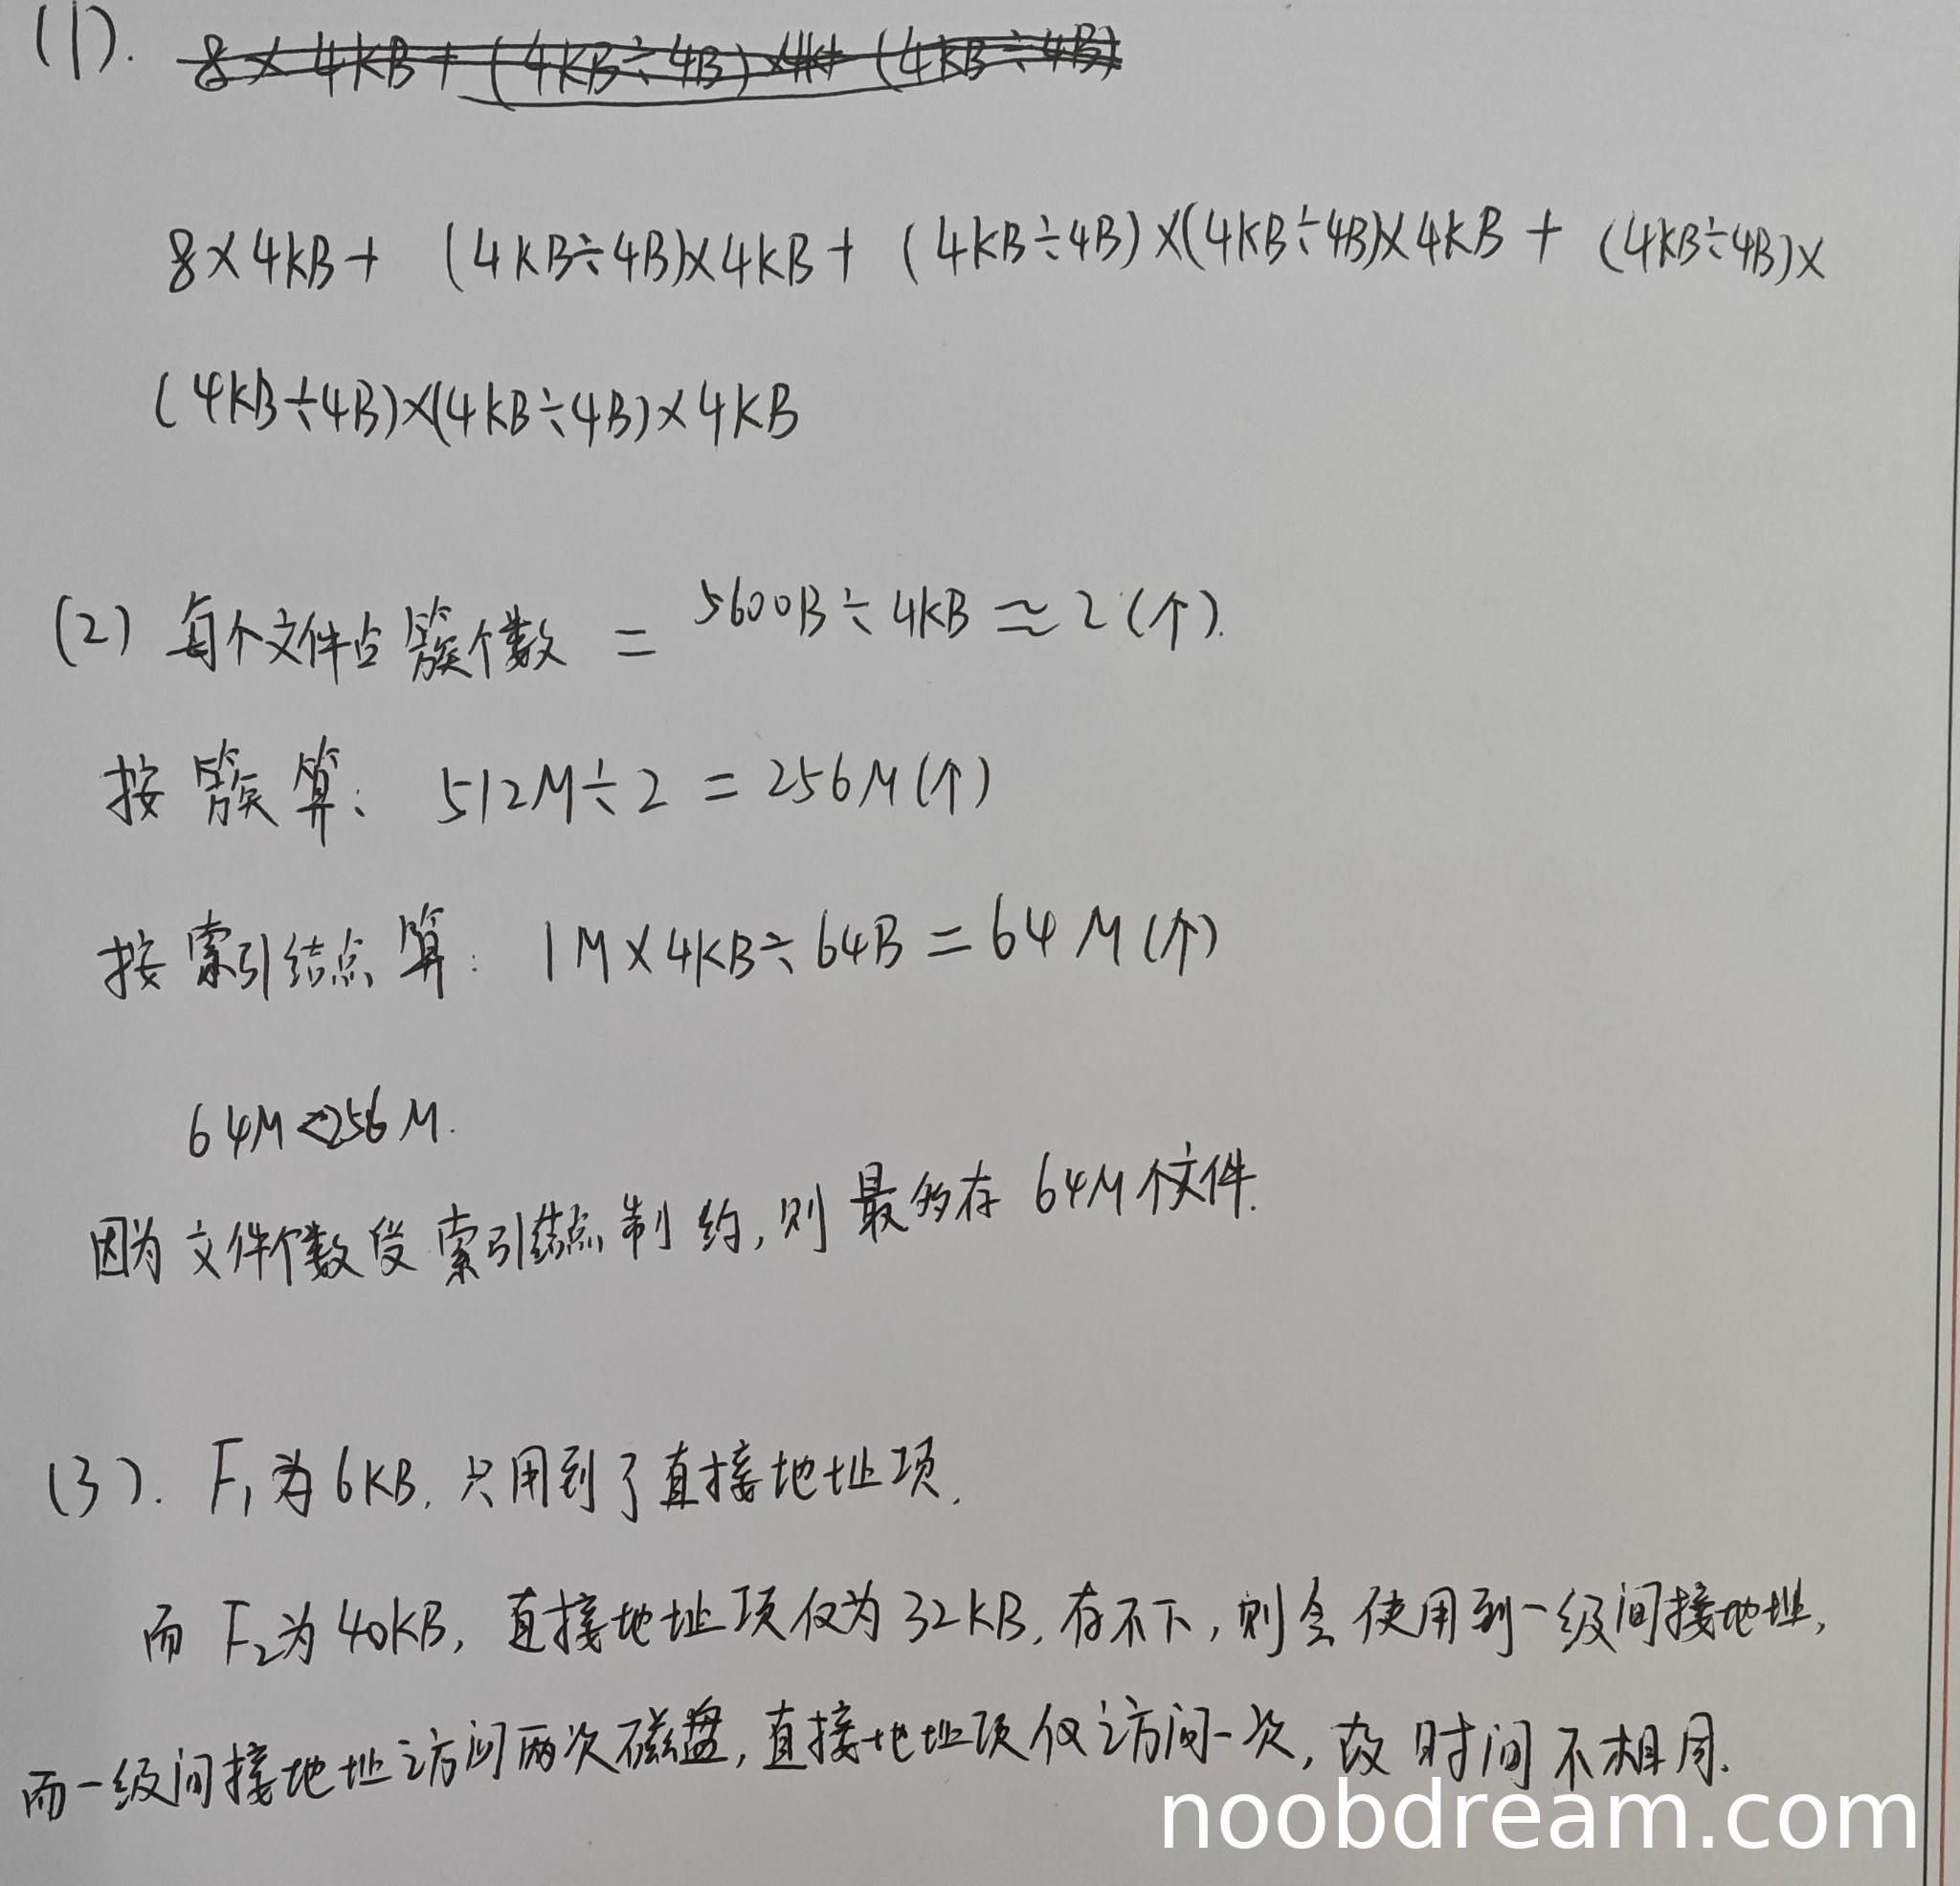 (1). 8×4KB+(4KB÷4B)×4K+(4KB÷4B)
8×4KB+ (4KB÷4B)×4KB+ (4KB÷4B)×(4KB÷4B)×4KB + (4KB÷4B)×
(4KB÷4B)×(4KB÷4B)×4KB
(2) 每个文件占簇个数 = 5600B÷4KB≈2(个).
按簇算: 512M÷2 = 256M(个)
按索引结点算: 1M×4KB÷64B=64M(个)
64M<256M.
因为文件个数受索引结点制约,则最多存64M个文件.
(3). F₁为6KB,只用到了直接地址项.
而F₂为40KB,直接地址项仅为32KB,存不下,则会使用到一级间接地址,
而一级间接地址访问两次磁盘,直接地址项仅访问一次,故时间不相同.
noobdream.com